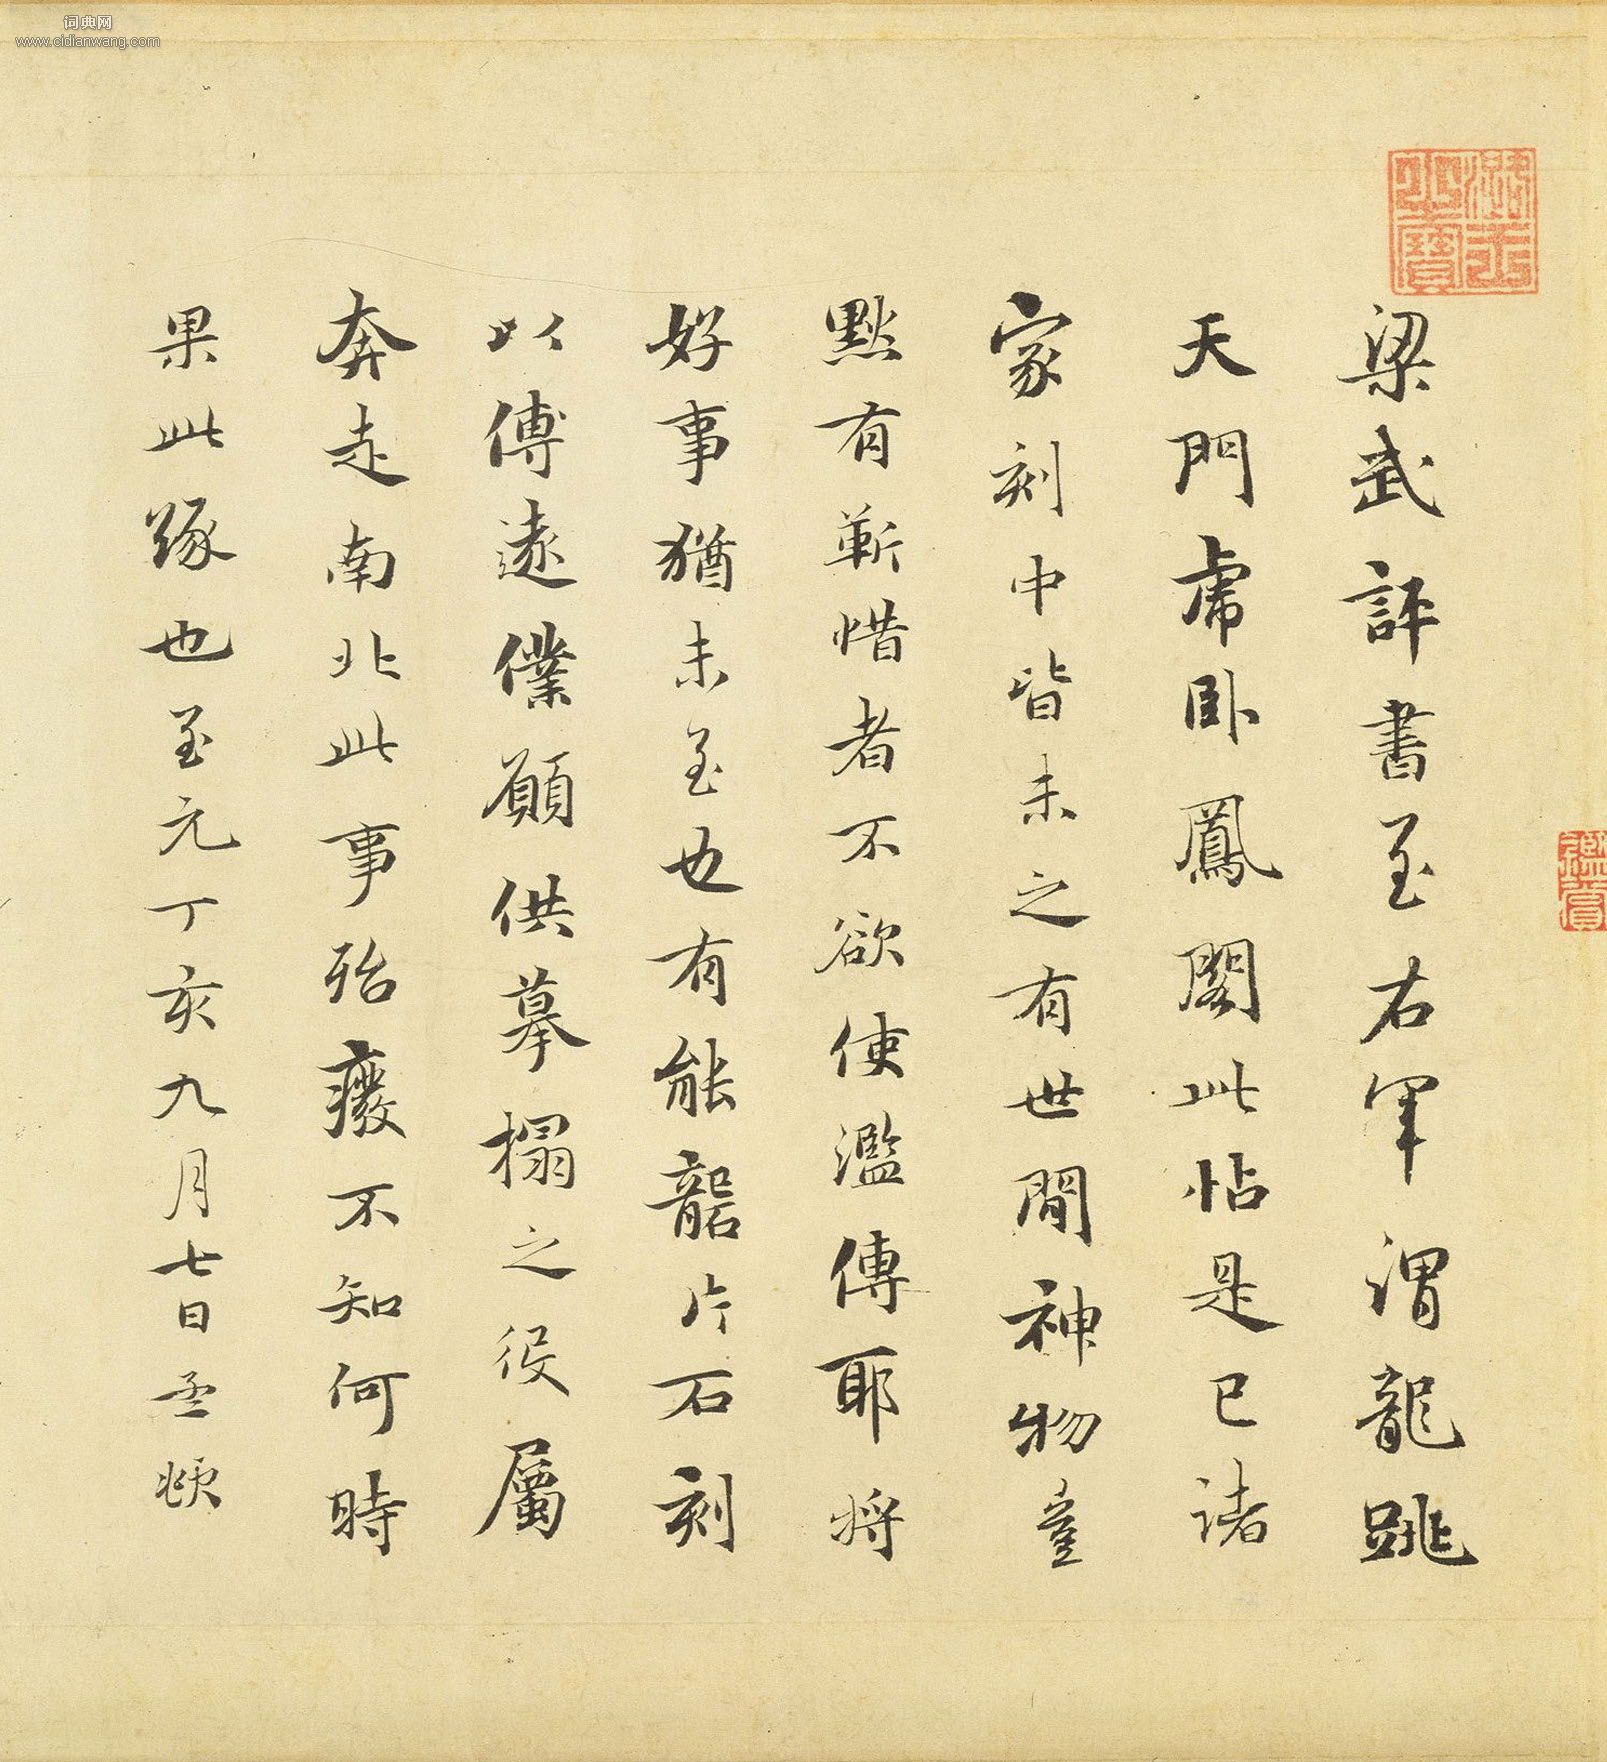 词典网
www.cidianwang.com
梁武評書至右軍謂龍跳
天門虎卧鳳閣此帖是已諸
家刻中皆未之有世間神物豈
默有蘄惜者不欲使濫傳耶将
好事猶未至也有能礱片石刻
以傳遠僕願供摹搨之役屬
奔走南北此事殆癈不知何時
果此縁也至元丁亥九月七日孟頫
鑑賞